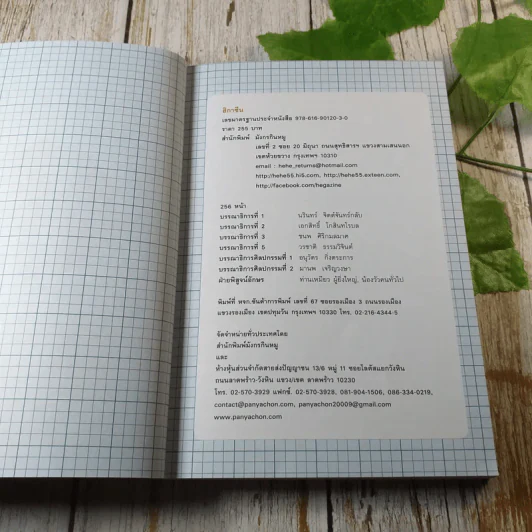 ฮิกาซีน
เลขมาตรฐานประจำหนังสือ 978-616-90120-3-0
ราคา 255 บาท
สำนักพิมพ์ มังกรกินหมู
เลขที่ 2 ซอย 20 มิถุนา ถนนสุทธิสารฯ แขวงสามเสนนอก
เขตห้วยขวาง กรุงเทพฯ 10310
email : hehe_returns@hotmail.com
http://hehe55.hi5.com, http://hehe55.exteen.com,
http://facebook.com/hegazine
256 หน้า
บรรณาธิการที่ 1 นรินทร์ จิตต์จันทร์กลับ
บรรณาธิการที่ 2 เอกสิทธิ์ โกสินทโรบล
บรรณาธิการที่ 3 ชนพ ศิริกมลมาศ
บรรณาธิการที่ 5 วรชาติ ธรรมวิจินต์
บรรณาธิการศิลปกรรมที่ 1 อนุวัตร กิ่งตระการ
บรรณาธิการศิลปกรรมที่ 2 มานพ เจริญวงษา
ฝ่ายพิสูจน์อักษร ท่านเหมียว ผู้ยิ่งใหญ่, น้องวัวคนทั่วไป
พิมพ์ที่ หจก.ขันติการพิมพ์ เลขที่ 67 ซอยรองเมือง 3 ถนนรองเมือง
แขวงรองเมือง เขตปทุมวัน กรุงเทพฯ 10330 โทร. 02-216-4344-5
จัดจำหน่ายทั่วประเทศโดย
สำนักพิมพ์มังกรกินหมู
และ
ห้างหุ้นส่วนจำกัดสายส่งปัญญาชน 13/6 หมู่ 11 ซอยโลตัสแยกวังหิน
ถนนลาดพร้าว-วังหิน แขวง/เขต ลาดพร้าว 10230
โทร. 02-570-3929 แฟกซ์. 02-570-3928, 081-904-1506, 086-334-0219,
contact@panyachon.com, panyachon20009@gmail.com
www.panyachon.com